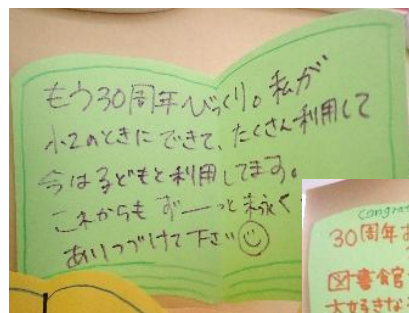 もう30周年びっくり。私が
小2のときにできて、たくさん利用して
今は子どもと利用してます。
これからも ずーっと末永く
ありつづけて下さい
congrat
30周年お
図書館
大好きな